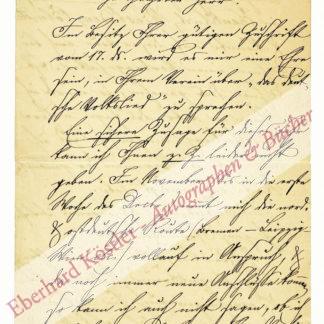 geehrter Herr
Im Besitz Ihrer gütigen Zuschrift
vom 17. ds. wird es mir eine Ehre
sein, in Ihrem Verein über „das deut-
sche Volkslied" zu sprechen.
Eine sichere Zusage für
kann ich Ihnen z. Z. leider nicht
geben. Im November bis in die erste
Woche des Dec. mich die nord.
& ostdeutsche Route (Bremen - Leipzig
vollauf in Anspruch, &
noch immer neue Anschlüsse
so kann ich auch nicht sagen, ob ich
Eberhard Köstler Autographen & Bücher